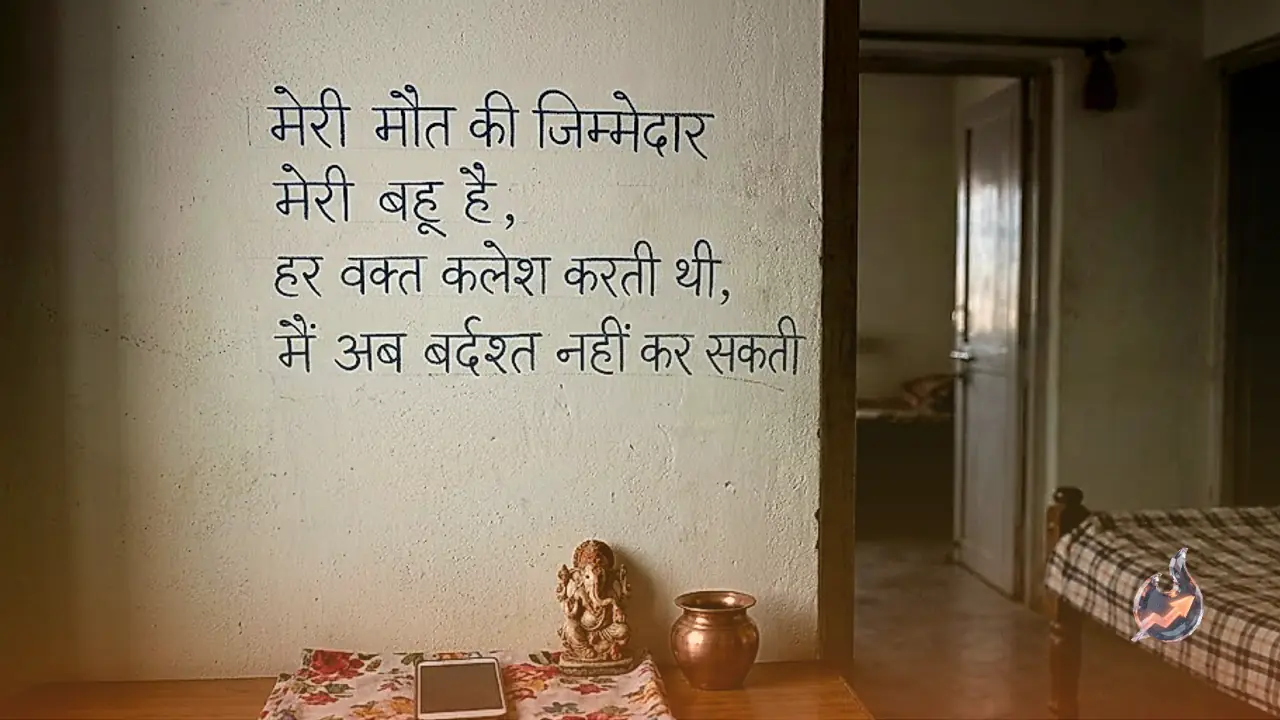 मेरी मौत की जिम्मेदार
मेरी बहू है,
हर वक्त कलेश करती थी,
मैं अब बर्दश्त नहीं कर सकती